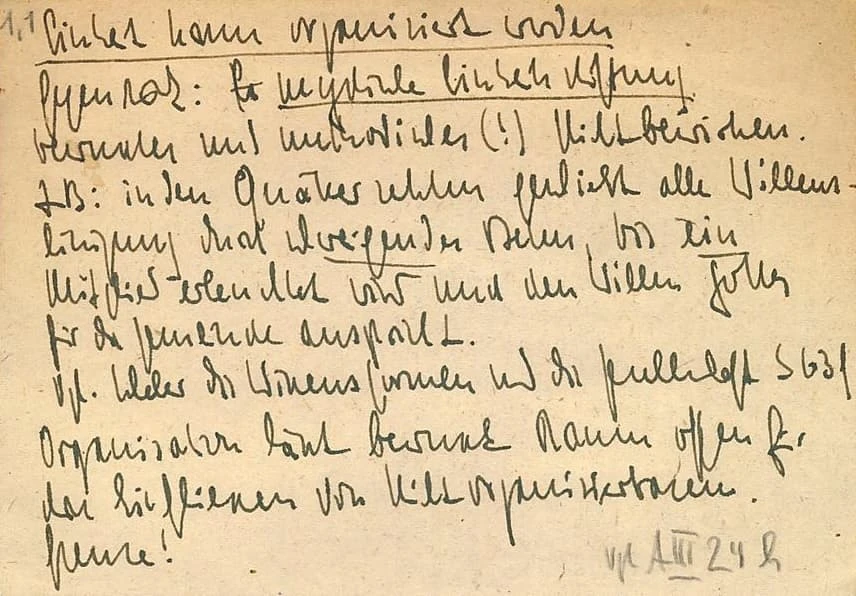 1,1 Einheit kann organisiert werden
Gegensatz: mystische Einheitsstiftung
bewusstes und methodisches (!) Nichtbewirken.
z.B: in den Quäkersekten geschieht alle Willens-
einigung durch schweigendes Beten, bis ein
Mitglied erleuchtet wird und den Willen Gottes
für die Gemeinde ausspricht.
Vgl. Scheler Die Wissensformen und die Gesellschaft S 631
Organisation lässt bewusst Raum offen für
das Einfliessen von Nichtorganisierbarem.
Grenze!
vgl A III 24 h